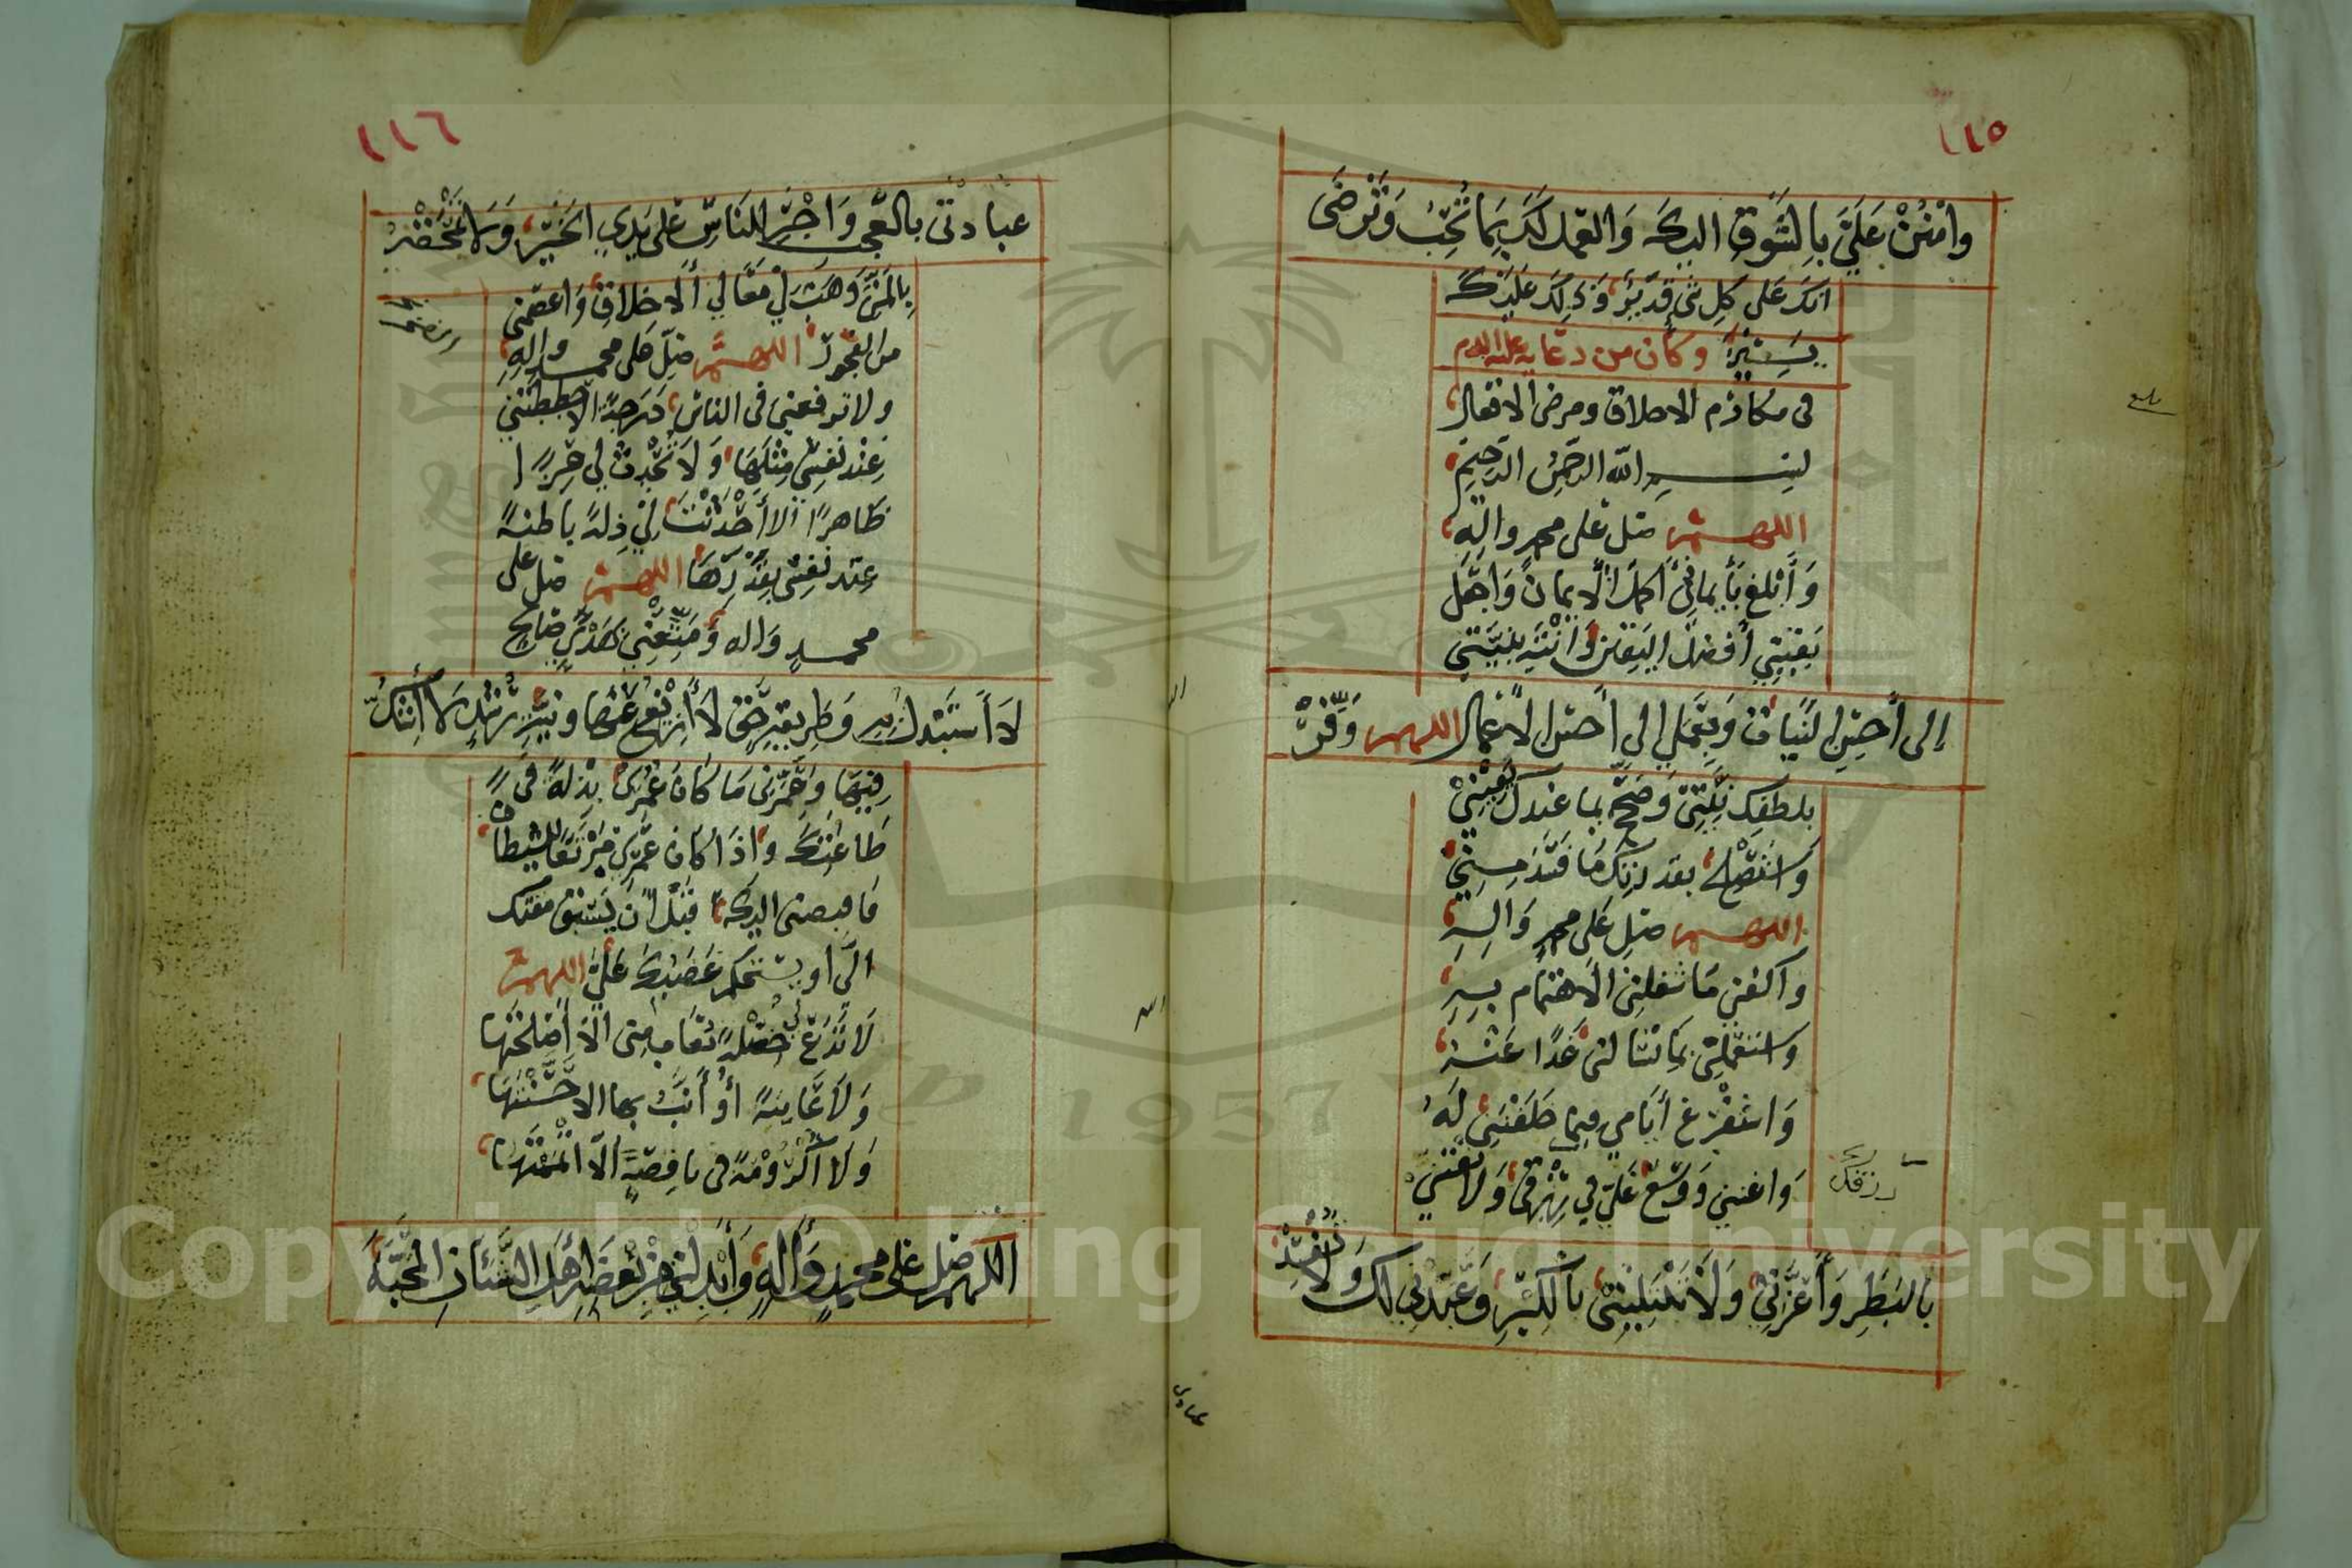 ١١٥
وامنن علي بالشوق اليك والعمل لك بما تحب وترضى
انك على كل شي قدير وذلك عليك
يسير وكان من دعايه عليه السلام
في مكارم الاخلاق ومرضي الافعال
بسم الله الرحمن الرحيم
اللهم صل على محمد واله
وأبلغ بأيماني أكمل الأيمان واجعل
يقيني أفضل اليقين وانته بنيتي
إلى أحسن النيات وبعملي الى أحسن الأعمال اللهم وفر
بلطفك نيتي وصح بما عندك يقيني
واستصلح بقدرتك ما فسد مني
اللهم صل على محمد واله
واكفني ما شغلني الاهتمام به
واستعملني بما تسالني غدا عنه
واستفرغ أيامي فيما خلقتني له
واغنني ووسع علي في رزقي ولا تفتني
رزقك
بالبطر وأعزني ولا تبتليني بالكبر وعبدني لك ولا تفسد
عبادتي
١١٦
عبادتي بالعجب واجر للناس على يدي الخير ولا تمحقه
بالمن وهب لي معالي ألاخلاق واعصمني
من الفخر اللهم صل على محمد واله
ولا ترفعني في الناس درجة الا حططتني
عند نفسي مثلها ولا تحدث لي عزا
ظاهرا الا أحدثت لي ذلة باطنة
عند نفسي بقدرها اللهم صل على
محمد واله ومتعني بهدى صالح
لا أستبدل به وطريقة حق لا أزيغ عنها ونية رشد لا أشك
فيها وعمرني ما كان عمري بذلة في
طاعتك واذا كان عمري مرتعا للشيطان
فاقبضني اليك قبل ان يسبق مقتك
الي او يستحكم غضبك علي اللهم
لا تدع لي خصلة تعاب مني الا أصلحتها
ولا عايبة أونب بها الا حسنتها
ولا أكرومة في ناقصة الا اتممتها
اللهم صل على محمد وأله وأبدلني من بغضة أهل الشنأن المحبة